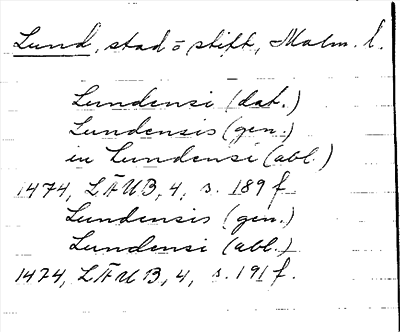 Lund, stad o stift, Malm. l.
Lundensi (dat.)
Lundensis (gen.)
in Lundensi (abl.)
1474, LÄUB, 4, s. 189 f.
Lundensis (gen.)
Lundensi (abl.)
1474, LÄUB, 4, s. 191 f.